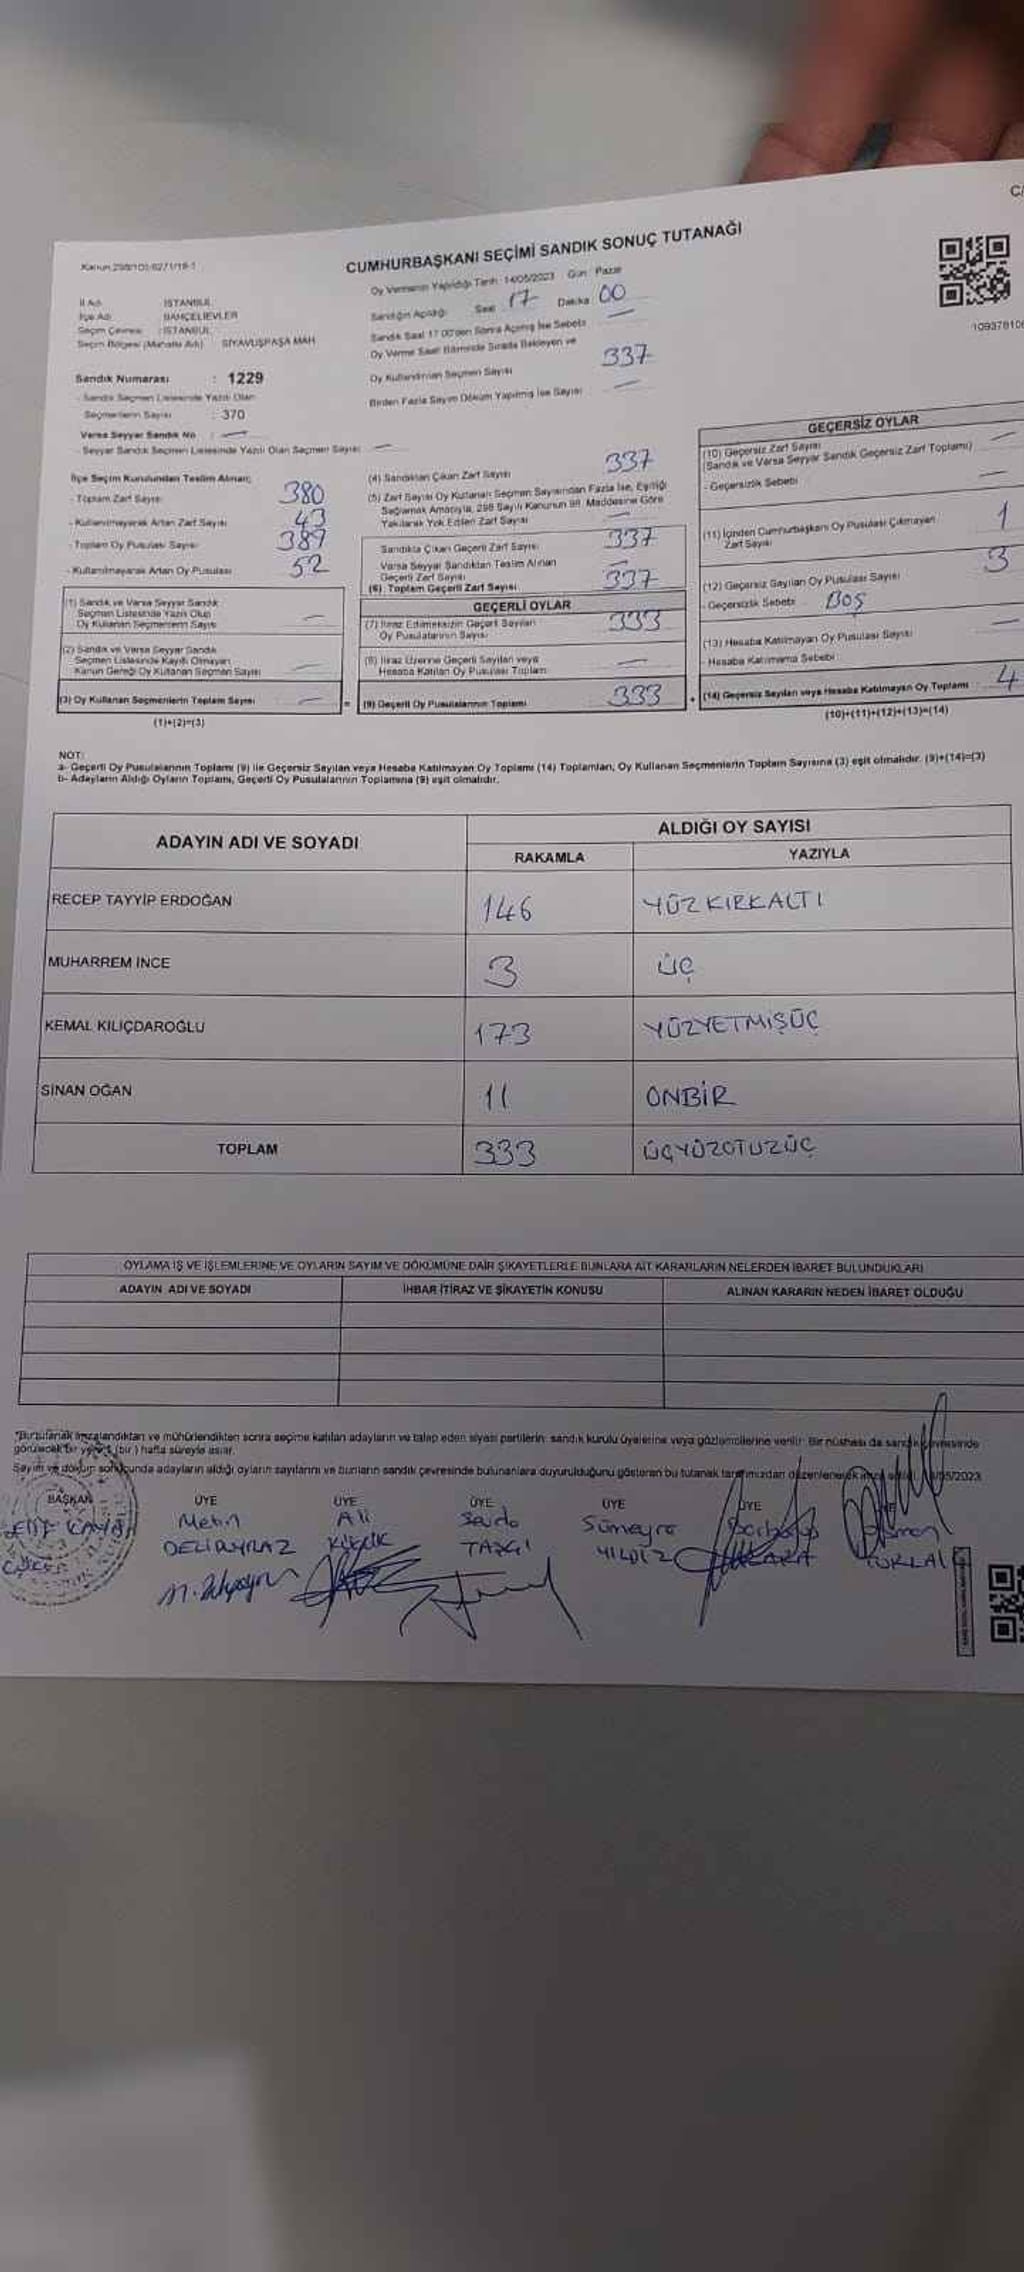 C/
CUMHURBAŞKANI SEÇİMİ SANDIK SONUÇ TUTANAĞI
Oy Vermenin Yapıldığı Tarih : 14/05/2023 Gün : Pazar
Sandığın Açıldığı Saat 17 Dakika 00
Sandık Saat 17:00'den Sonra Açılmış İse Sebebi
Oy Verme Saati Bitiminde Sırada Bekleyen ve
Oy Kullandırılan Seçmen Sayısı 337
Birden Fazla Sayım Döküm Yapılmış İse Sayısı —
İl Adı : İSTANBUL
İlçe Adı : BAHÇELİEVLER
Seçim Çevresi : İSTANBUL
Seçim Bölgesi (Mahalle Adı) : SİYAVUŞPAŞA MAH.
Sandık Numarası : 1229
- Sandık Seçmen Listesinde Yazılı Olan
Seçmenlerin Sayısı : 370
Varsa Seyyar Sandık No : —
- Seyyar Sandık Seçmen Listesinde Yazılı Olan Seçmen Sayısı: —
İlçe Seçim Kurulundan Teslim Alınan;
- Toplam Zarf Sayısı 380
- Kullanılmayarak Artan Zarf Sayısı 43
- Toplam Oy Pusulası Sayısı 389
- Kullanılmayarak Artan Oy Pusulası 52
(1) Sandık ve Varsa Seyyar Sandık
Seçmen Listesinde Yazılı Olup
Oy Kullanan Seçmenlerin Sayısı —
(2) Sandık ve Varsa Seyyar Sandık
Seçmen Listesinde Kayıtlı Olmayan
Kanun Gereği Oy Kullanan Seçmen Sayısı —
(3) Oy Kullanan Seçmenlerin Toplam Sayısı —
(1)+(2)=(3)
(4) Sandıktan Çıkan Zarf Sayısı 337
(5) Zarf Sayısı Oy Kullanan Seçmen Sayısından Fazla İse, Eşitliği
Sağlamak Amacıyla, 298 Sayılı Kanunun 98. Maddesine Göre
Yakılarak Yok Edilen Zarf Sayısı —
Sandıkta Çıkan Geçerli Zarf Sayısı 337
Varsa Seyyar Sandıktan Teslim Alınan
Geçerli Zarf Sayısı
(6) Toplam Geçerli Zarf Sayısı 337
GEÇERLİ OYLAR
(7) İtiraz Edilmeksizin Geçerli Sayılan
Oy Pusulalarının Sayısı 333
(8) İtiraz Üzerine Geçerli Sayılan veya
Hesaba Katılan Oy Pusulası Toplamı —
= (9) Geçerli Oy Pusulalarının Toplamı 333
GEÇERSİZ OYLAR
(10) Geçersiz Zarf Sayısı
(Sandık ve Varsa Seyyar Sandık Geçersiz Zarf Toplamı) —
- Geçersizlik Sebebi —
(11) İçinden Cumhurbaşkanı Oy Pusulası Çıkmayan
Zarf Sayısı 1
(12) Geçersiz Sayılan Oy Pusulası Sayısı 3
- Geçersizlik Sebebi BOŞ
(13) Hesaba Katılmayan Oy Pusulası Sayısı —
- Hesaba Katılmama Sebebi
+ (14) Geçersiz Sayılan veya Hesaba Katılmayan Oy Toplamı 4
(10)+(11)+(12)+(13)=(14)
NOT:
a- Geçerli Oy Pusulalarının Toplamı (9) ile Geçersiz Sayılan veya Hesaba Katılmayan Oy Toplamı (14) Toplamları, Oy Kullanan Seçmenlerin Toplam Sayısına (3) eşit olmalıdır. (9)+(14)=(3)
b- Adayların Aldığı Oyların Toplamı, Geçerli Oy Pusulalarının Toplamına (9) eşit olmalıdır.
ADAYIN ADI VE SOYADI ALDIĞI OY SAYISI
RAKAMLA YAZIYLA
RECEP TAYYİP ERDOĞAN 146 YÜZKIRKALTI
MUHARREM İNCE 3 ÜÇ
KEMAL KILIÇDAROĞLU 173 YÜZYETMİŞÜÇ
SİNAN OĞAN 11 ONBİR
TOPLAM 333 ÜÇYÜZOTUZÜÇ
OYLAMA İŞ VE İŞLEMLERİNE VE OYLARIN SAYIM VE DÖKÜMÜNE DAİR ŞİKAYETLERLE BUNLARA AİT KARARLARIN NELERDEN İBARET BULUNDUKLARI
ADAYIN ADI VE SOYADI İHBAR İTİRAZ VE ŞİKAYETİN KONUSU ALINAN KARARIN NEDEN İBARET OLDUĞU
*Bu tutanak imzalandıktan ve mühürlendikten sonra seçime katılan adayların ve talep eden siyasi partilerin sandık kurulu üyelerine veya gözlemcilerine verilir. Bir nüshası da sandık çevresinde
görülecek bir yere 1 (bir) hafta süreyle asılır.
Sayım ve döküm sonucunda adayların aldığı oyların sayılarını ve bunların sandık çevresinde bulunanlara duyurulduğunu gösteren bu tutanak tarafımızdan düzenlenerek
BAŞKAN ÜYE ÜYE ÜYE ÜYE ÜYE
Metin Ali Seda Sümeyra
KÜÇÜK YILDIZ